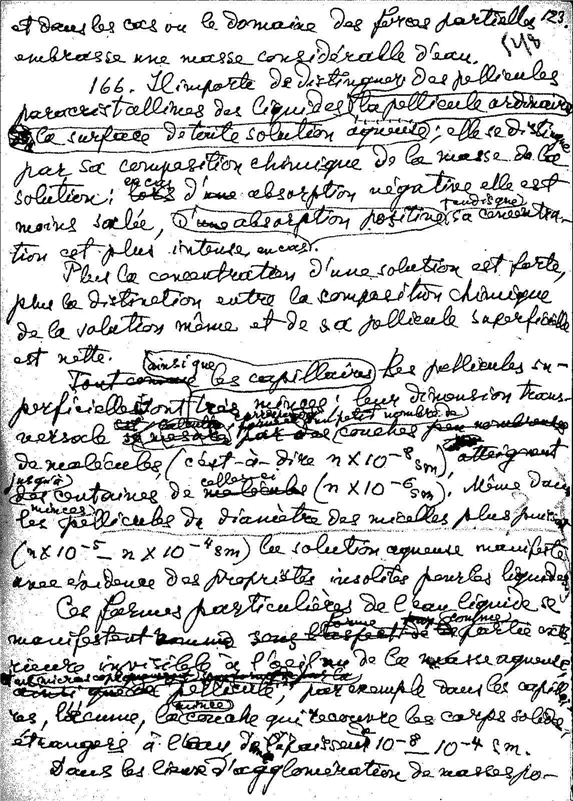 et dans les cas où le domaine des forces partielles 123.
embrasse une masse considérable d'eau. 548
166. Il importe de distinguer des pellicules
paracristallines des liquides la pellicule ordinaire
la surface de toute solution aqueuse; elle se distingue
par sa composition chimique de la masse de la
solution: en cas d'une absorption négative elle est
moins salée, d'une absorption positive, tandisque sa concentra-
tion est plus intense en cas.
Plus la concentration d'une solution est forte,
plus la distinction entre la composition chimique
de la solution même et de sa pellicule superficielle
est nette.
Tout comme ainsi que les capillaires les pellicules su-
perficielles sont très minces: leur dimension trans-
versale se mesure par des couches peu nombreuses
de molécules (c'est-à-dire n×10⁻⁸ sm) atteignant
jusqu'à des centaines de molécules celles-ci (n×10⁻⁶ sm). Même dans
les pellicules minces du diamètre des micelles plus
(n×10⁻⁵ – n×10⁻⁴ sm) la solution aqueuse manifeste
avec évidence des propriétés insolites pour les liquides
Ces formes particulières de l'eau liquide se
manifestent comme sous l'aspect de partie
invisible à l'œil nu de la masse aqueuse,
ainsi que pellicule, par exemple dans les capillai-
res, l'écume, la couche mince qui recouvre les corps solides
étrangers à l'eau de l'épaisseur 10⁻⁸ – 10⁻⁴ sm.
Dans les lieux d'agglomération de masses po-